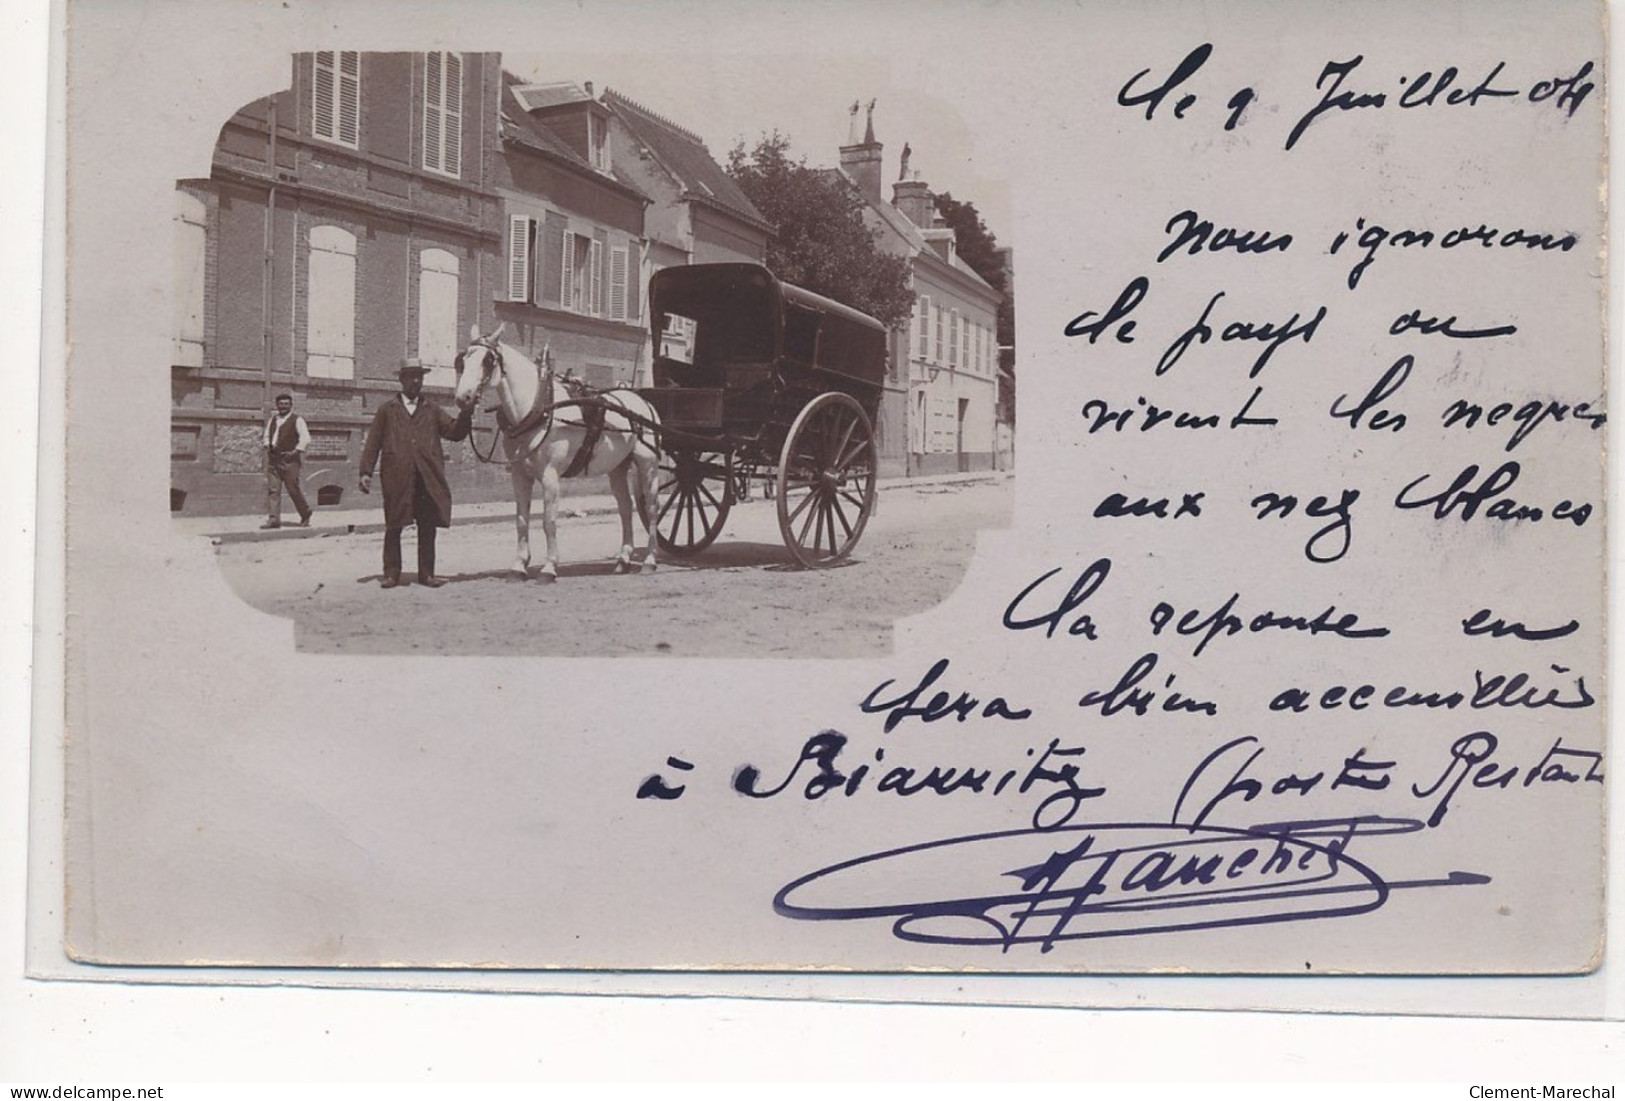 le 9 Juillet 04
Nous ignorons
le pays ou
vivent les negres
aux nez blancs
La reponse en
sera bien acceuillie
à Biarritz (poste Restante
delcampe.net
Clement-Marechal